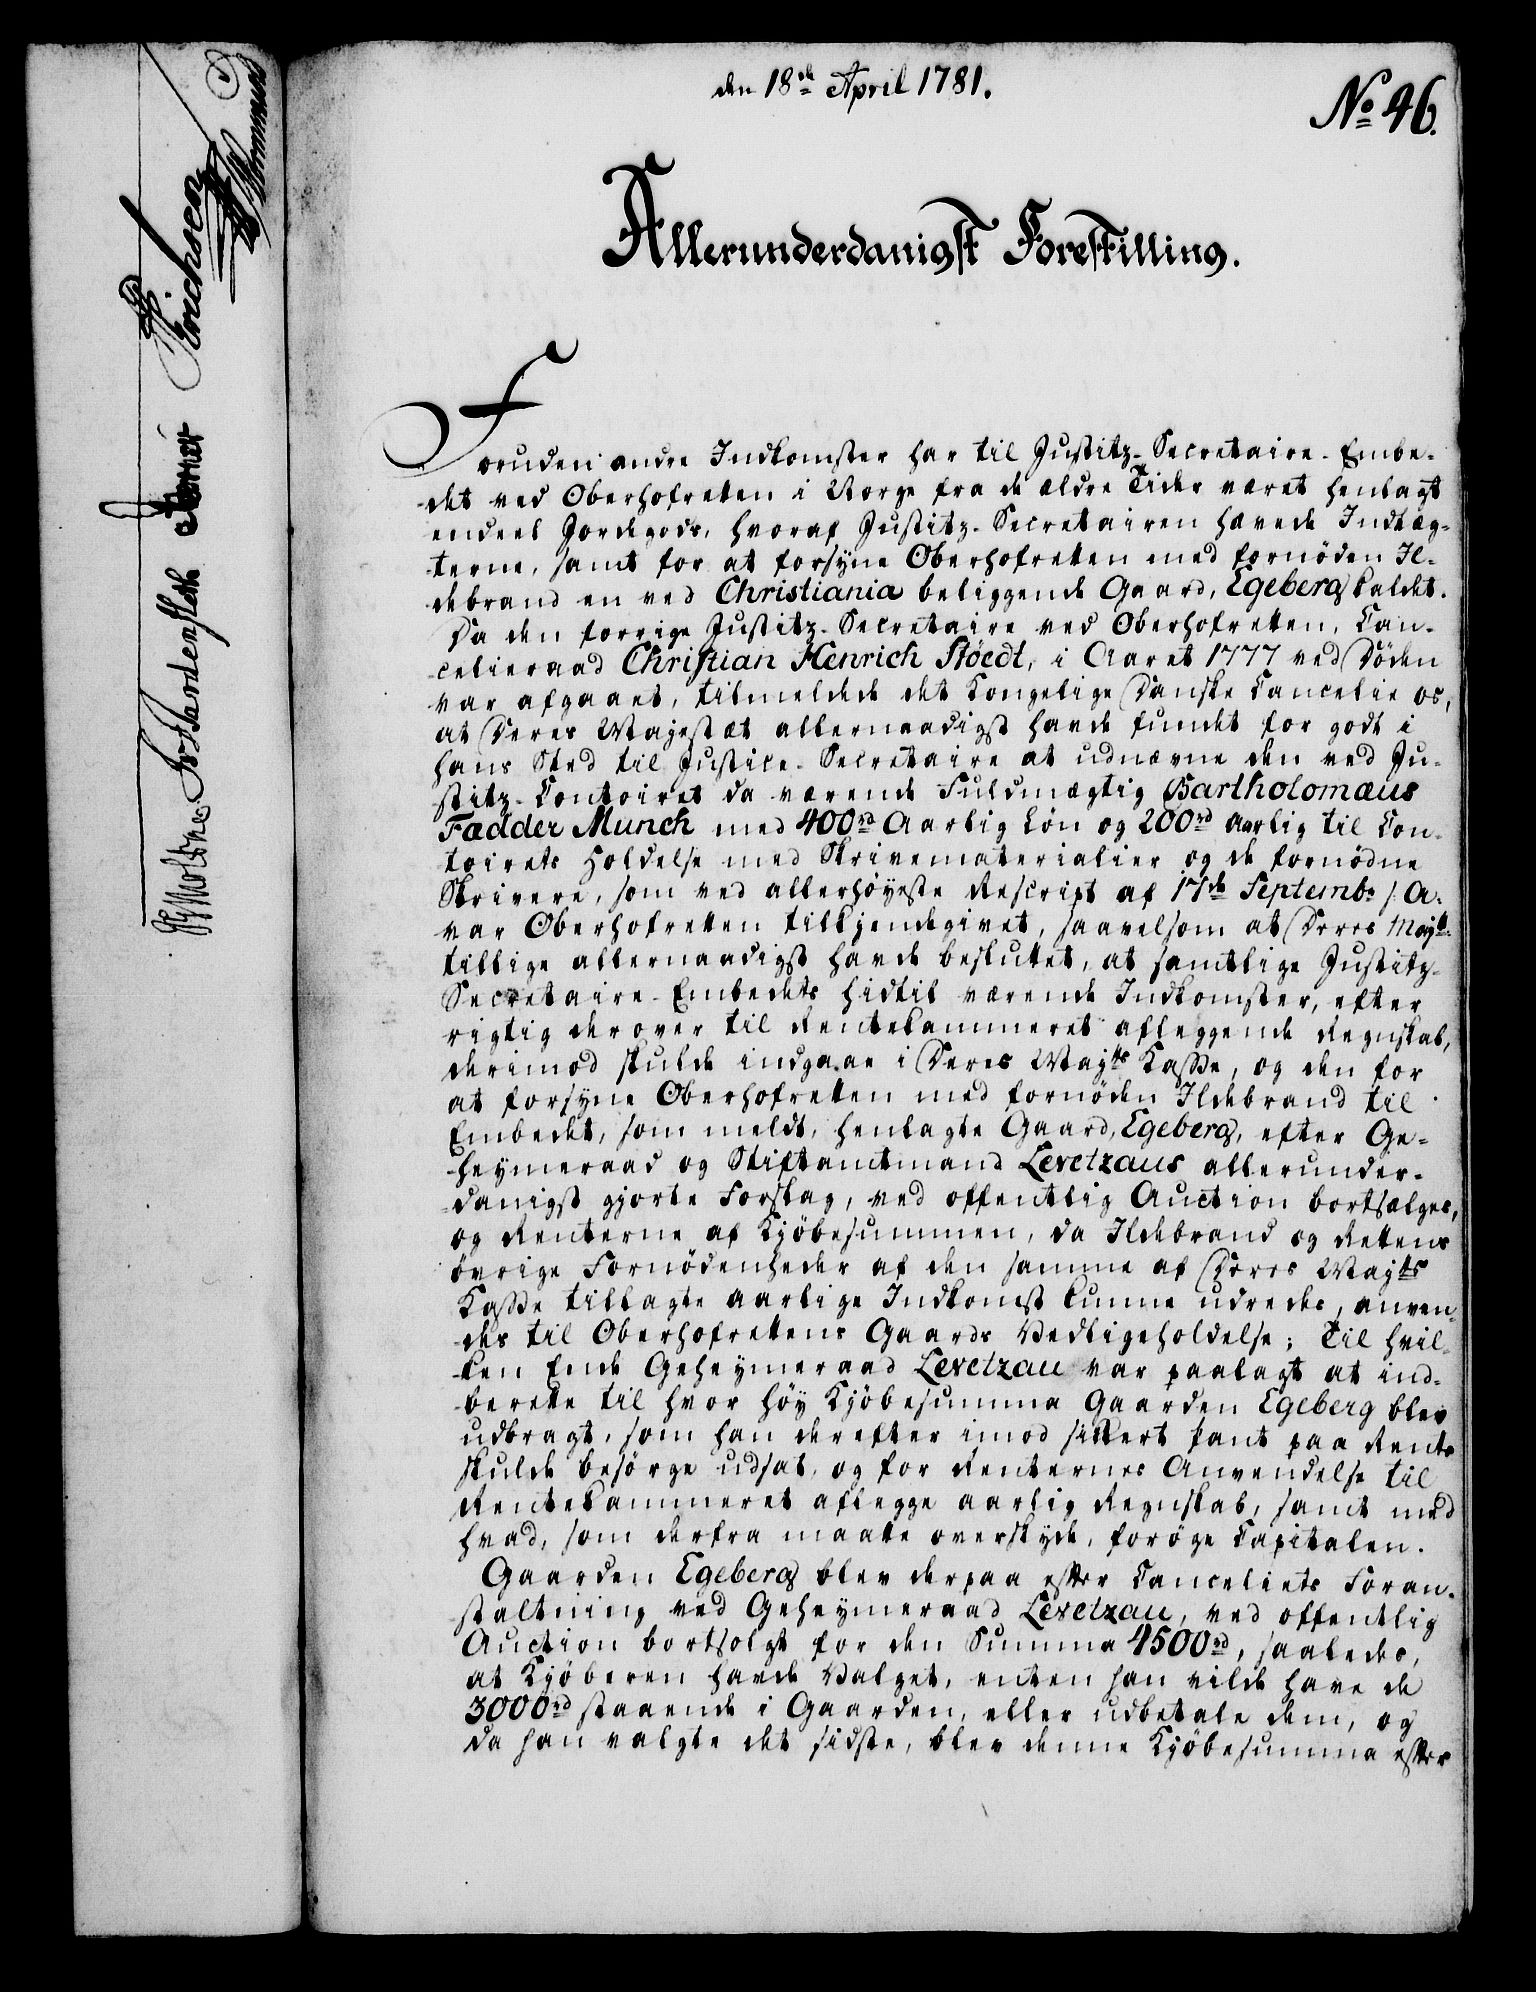 den 18de April 1781.
No 46.
Allerunderdanigst Forestilling.
Foruden andre Indkomster har til Justitz-Secretaire-Embe-
det ved Oberhofretten i Norge fra de ældre Tider været henlagt
endeel Jordegods, hvoraf Justitz-Secretairen hævede Indtæg-
terne, samt for at forsyne Oberhofretten med fornøden Il-
debrand en ved Christiania beliggende Gaard, Egeberg kaldet.
Da den forrige Justitz-Secretaire ved Oberhofretten, Can-
celieraad Christian Henrich Stöedt, i Aaret 1777 ved Døden
var afgaaet, tilmeldede det Kongelige Danske Cancelie os,
at Deres Majestæt allernaadigst havde fundet for godt i
hans Sted til Justice-Secretaire at udnævne den ved Ju-
stitz-Contoiret da værende Fuldmægtig Bartholomæus
Fædder Munch med 400rd Aarlig Løn og 200rd Aarlig til Con-
toirets Holdelse med Skrivematerialier og de fornødne
Skrivere, som ved allerhøyeste Rescript af 17de Septembr s: A:
var Oberhofretten tilkjendegivet, saavelsom at Deres Maytt:
tillige allernaadigst havde besluttet, at samtlige Justitz-
Secretaire-Embedets hidtil værende Indkomster, efter
rigtig derover til Rentekammeret aflæggende Regnskab,
derimod skulde indgaae i Deres Mayts Kasse, og den for
at forsyne Oberhofretten med fornøden Ildebrand til
Embedet, som meldt, henlagte Gaard, Egeberg, efter Ge-
heymeraad og Stiftamtmand Levetzaus allerunder-
danigst gjorte Forslag, ved offentlig Auction bortsælges,
og Renterne af Kjöbesummen, da Ildebrand og Rettens
övrige Fornödenheder af den samme af Deres Mayts
Kasse tillagte aarlige Indkomst kunne udredes, anven-
des til Oberhofrettens Gaards Vedligeholdelse; Til hvil-
ken Ende Geheymeraad Levetzau var paalagt at ind-
berette til hvor höy Kjöbesumma Gaarden Egeberg blev
udbragt, som han derefter imod sikkert Pant paa Rente
skulde besörge udsat, og for Renternes Anvendelse til
Rentekammeret aflegge aarlig Regnskab, samt med
hvad, som derfra maatte overskyde, foröge Capitalen.
Gaarden Egeberg blev derpaa efter Canceliets Foran-
staltning ved Geheymeraad Levetzau, ved offentlig
Auction bortsolgt for den Summa 4500rd, saaledes,
at Kjöberen havde Valget, enten han vilde have de
3000rd staaende i Gaarden, eller udbetale dem, og
da han valgte det sidste, blev denne Kjöbesumma efter